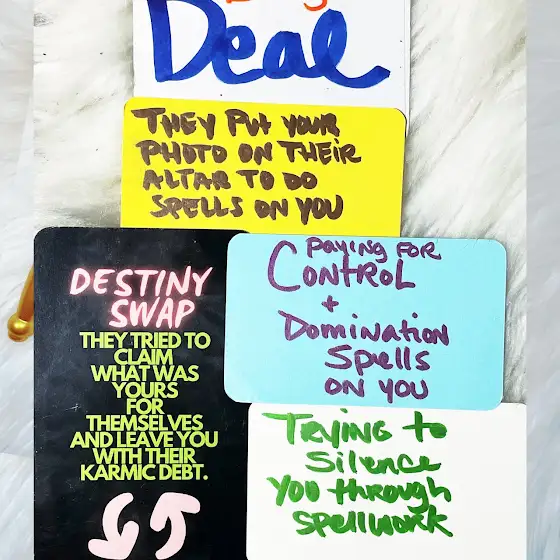 Deal
THEY PUt YOUR
PHOTO ON THEIR
ALTAR TO DO
SPELLS ON YOU
DESTINY
SWAP
THEY TRIED TO
CLAIM
WHAT WAS
YOURS
FOR
THEMSELVES
AND LEAVE YOU
WITH THEIR
KARMIC DEBT.
PAYING FOR
CONtROL
+
Domination
Spells
ON YOU
TRYING to
Silence
YOU through
Spellwork